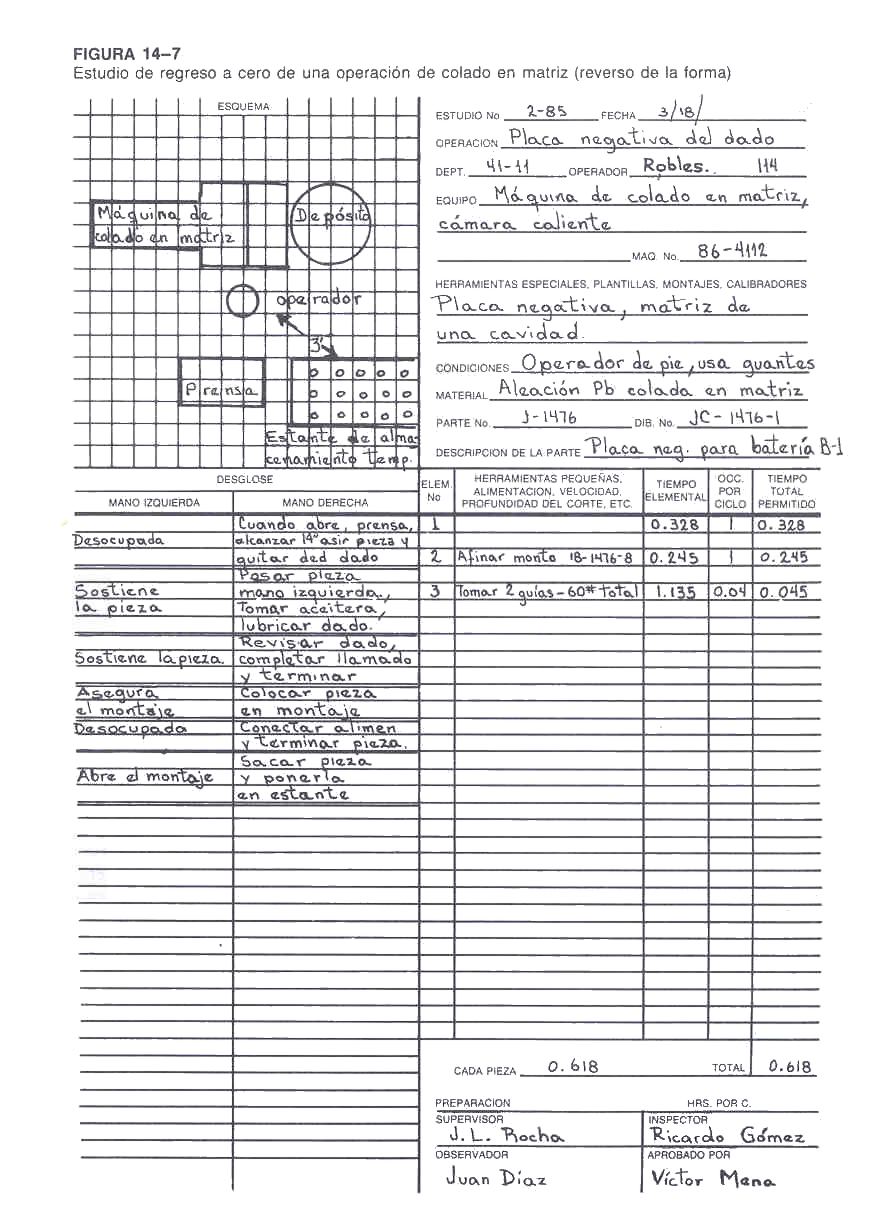 FIGURA 14–7
Estudio de regreso a cero de una operación de colado en matriz (reverso de la forma)
ESQUEMA
Máquina de
colado en matriz
Depósito
operador
3'
Prensa
Estante de alma-
cenamiento temp.
ESTUDIO No 2-85 FECHA 3/18/
OPERACION Placa negativa del dado
DEPT. 41-11 OPERADOR Robles.. 114
EQUIPO Máquina de colado en matriz,
cámara caliente
MAQ. No. 86-4112
HERRAMIENTAS ESPECIALES, PLANTILLAS, MONTAJES, CALIBRADORES
Placa negativa, matriz de
una cavidad.
CONDICIONES Operador de pie, usa guantes
MATERIAL Aleación Pb colada en matriz
PARTE No. J-1476 DIB. No. JC-1476-1
DESCRIPCION DE LA PARTE Placa neg. para batería B-1
DESGLOSE
MANO IZQUIERDA MANO DERECHA
ELEM. No
HERRAMIENTAS PEQUEÑAS,
ALIMENTACION, VELOCIDAD,
PROFUNDIDAD DEL CORTE, ETC.
TIEMPO
ELEMENTAL
OCC.
POR
CICLO
TIEMPO
TOTAL
PERMITIDO
Cuando abre, prensa, 1 0.328 1 0.328
Desocupada alcanzar 14" asir pieza y
quitar ded dado 2 Afinar monto 18-1476-8 0.245 1 0.245
Pasar pieza
Sostiene mano izquierda., 3 Tomar 2 guías-60# total 1.135 0.04 0.045
la pieza Tomar aceitera,
lubricar dado.
Revisar dado,
Sostiene la pieza. completar llamado
y terminar
Asegura Colocar pieza
el montaje en montaje
Desocupada Conectar alimen
y terminar pieza.
Sacar pieza
Abre el montaje y ponerla
en estante
CADA PIEZA 0.618 TOTAL 0.618
PREPARACION HRS. POR C.
SUPERVISOR INSPECTOR
J.L. Rocha Ricardo Gómez
OBSERVADOR APROBADO POR
Juan Díaz Víctor Mena